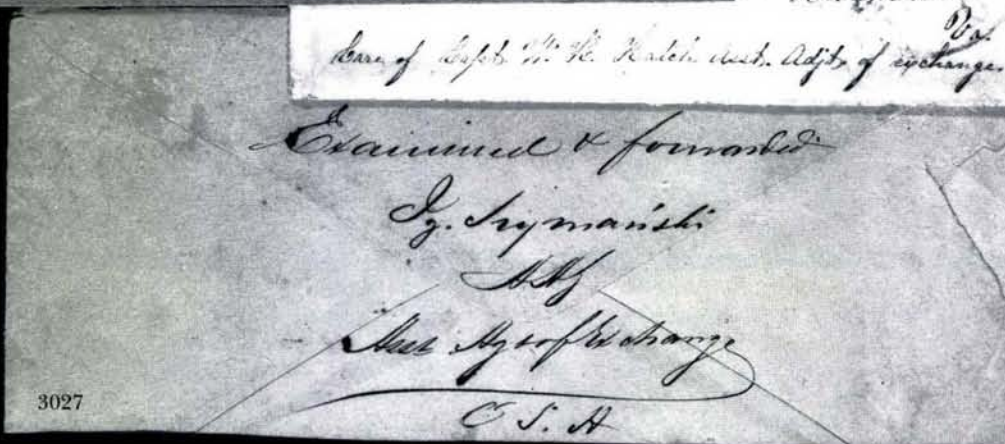 Va.
Care of Capt. W. H. Hatch Asst. Adjt. of exchange.
Examined & forwarded
Ig. Szymański
AAG
Asst Agt of Exchange
C S. A
3027